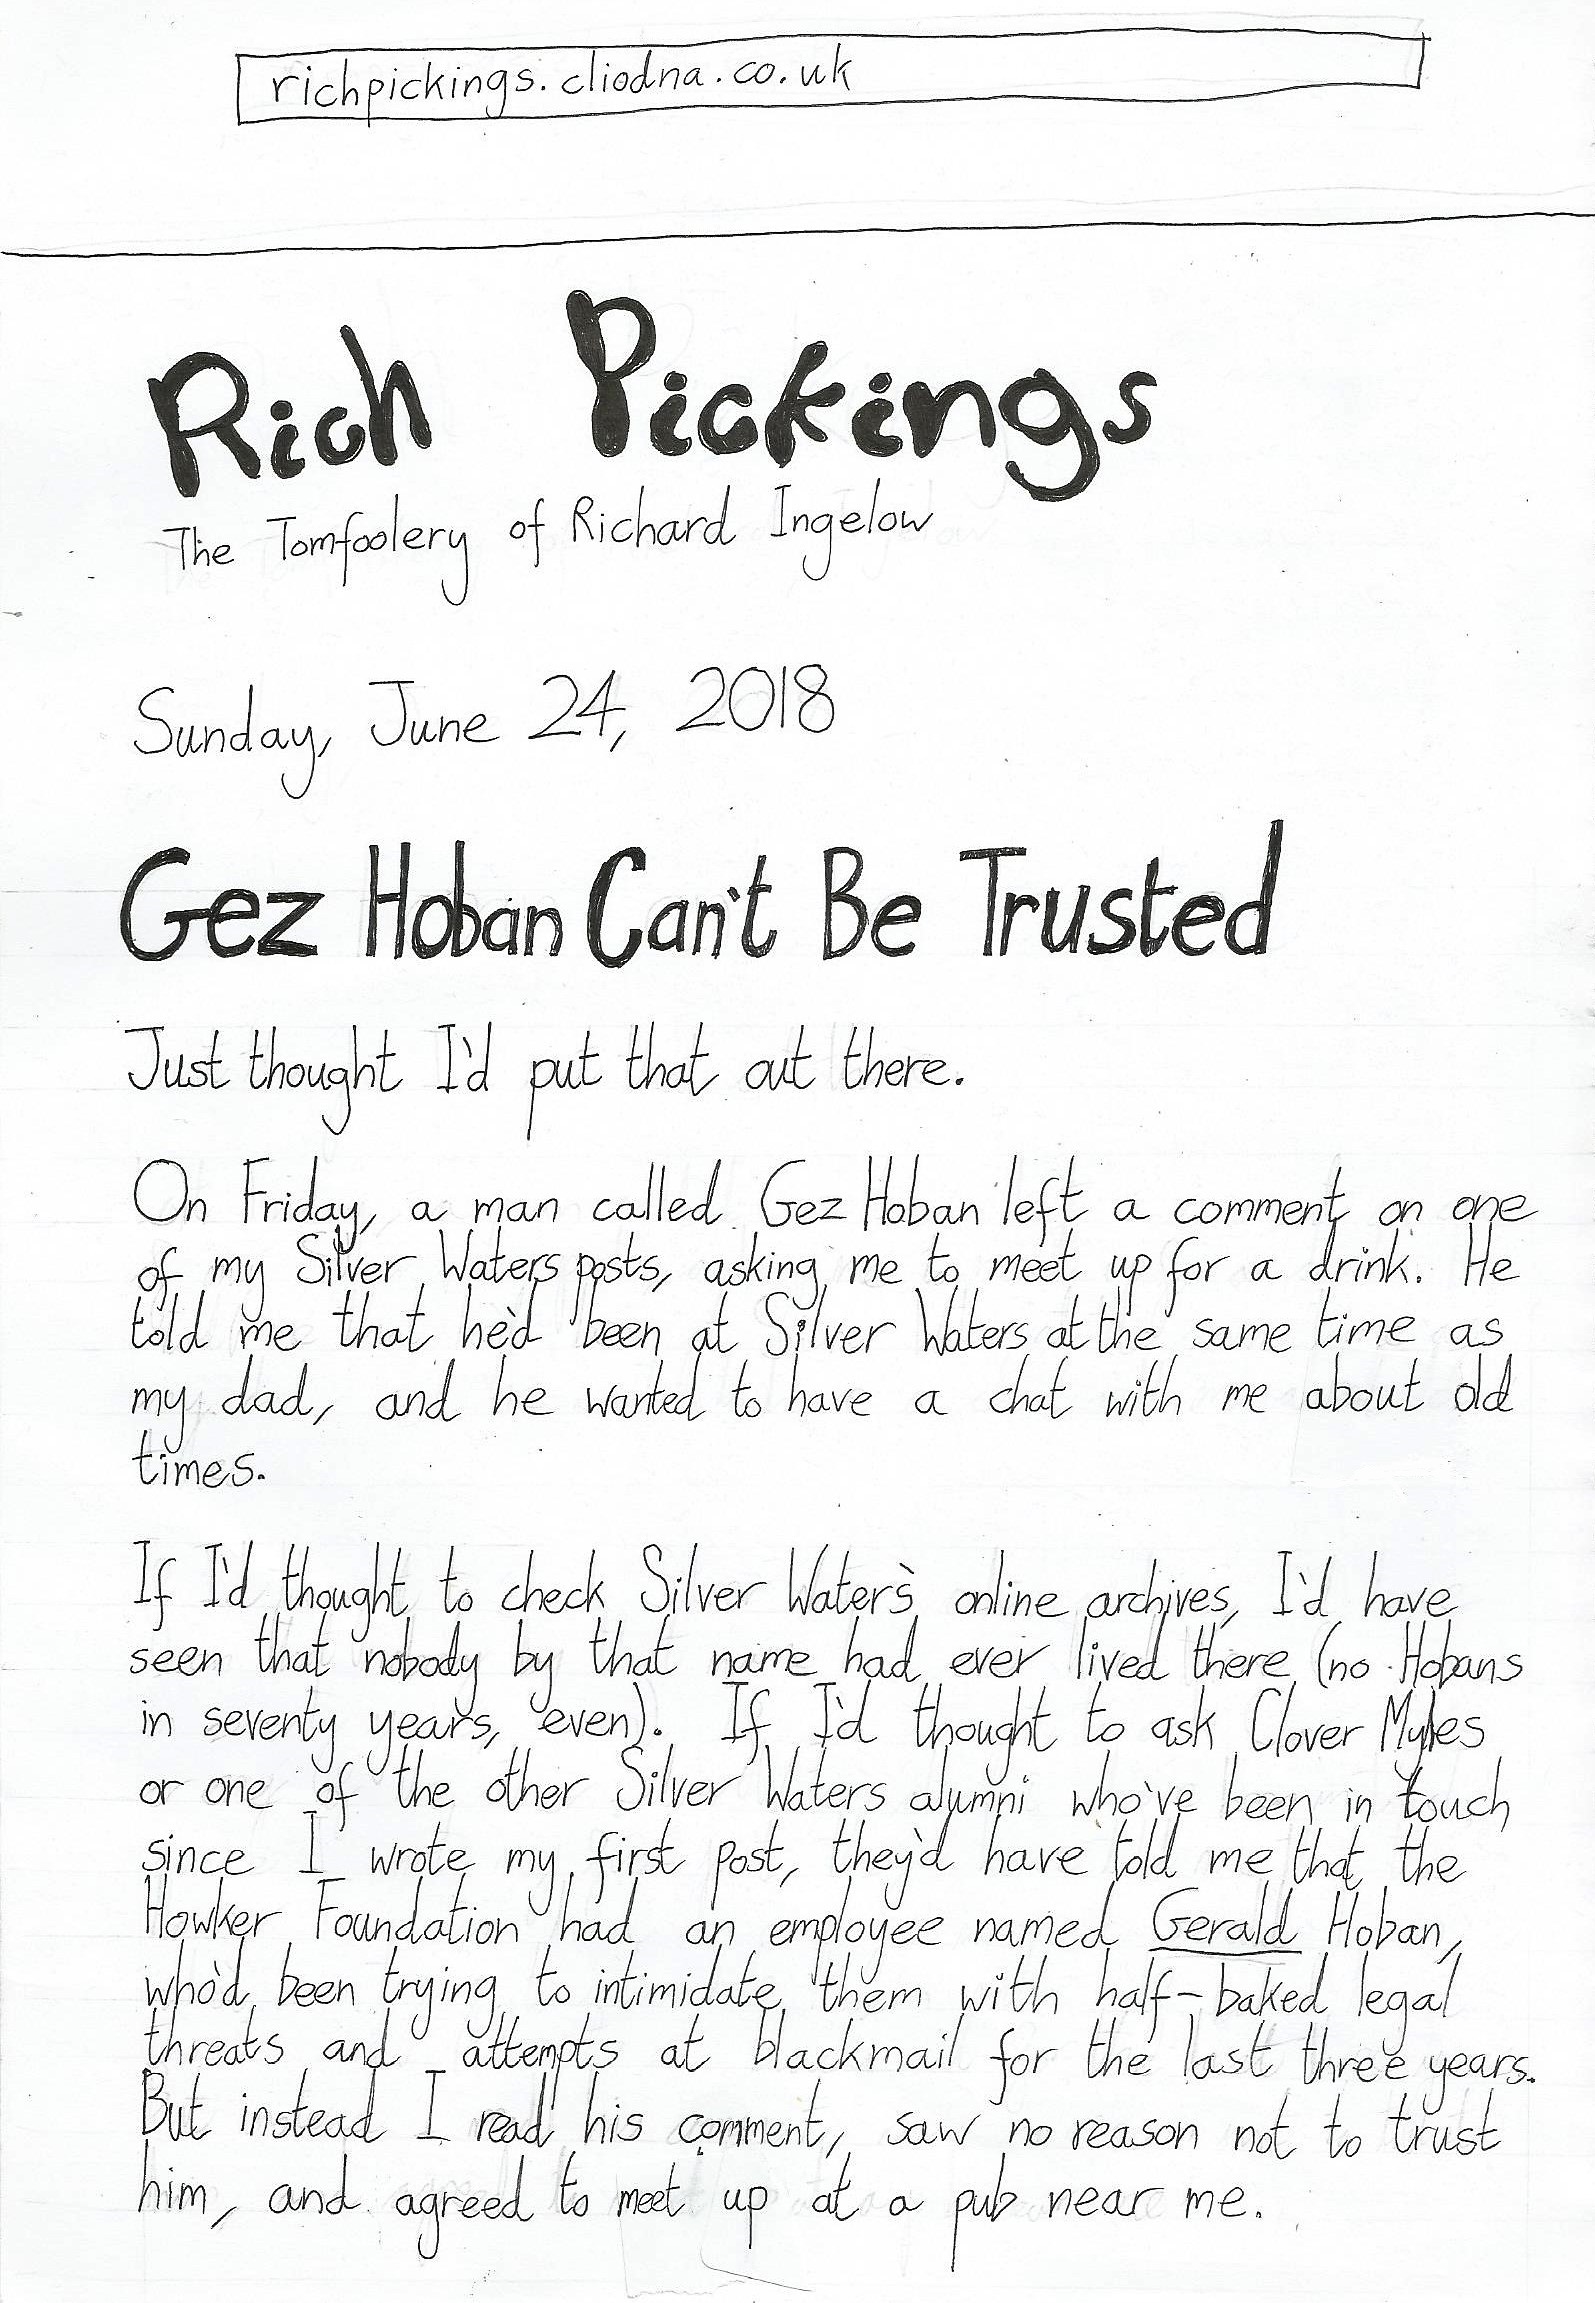 richpickings.cliodna.co.uk
Rich Pickings
The Tomfoolery of Richard Ingelow
Sunday, June 24, 2018
Gez Hoban Can't Be Trusted
Just thought I'd put that out there.
On Friday, a man called Gez Hoban left a comment on one
of my Silver Waters posts, asking me to meet up for a drink. He
told me that he'd been at Silver Waters at the same time as
my dad, and he wanted to have a chat with me about old
times.
If I'd thought to check Silver Water's online archives, I'd have
seen that nobody by that name had ever lived there (no Hobans
in seventy years, even). If I'd thought to ask Clover Myles
or one of the other Silver Waters alumni who've been in touch
since I wrote my first post, they'd have told me that the
Howker Foundation had an employee named Gerald Hoban,
who'd been trying to intimidate them with half-baked legal
threats and attempts at blackmail for the last three years.
But instead I read his comment, saw no reason not to trust
him, and agreed to meet up at a pub near me.